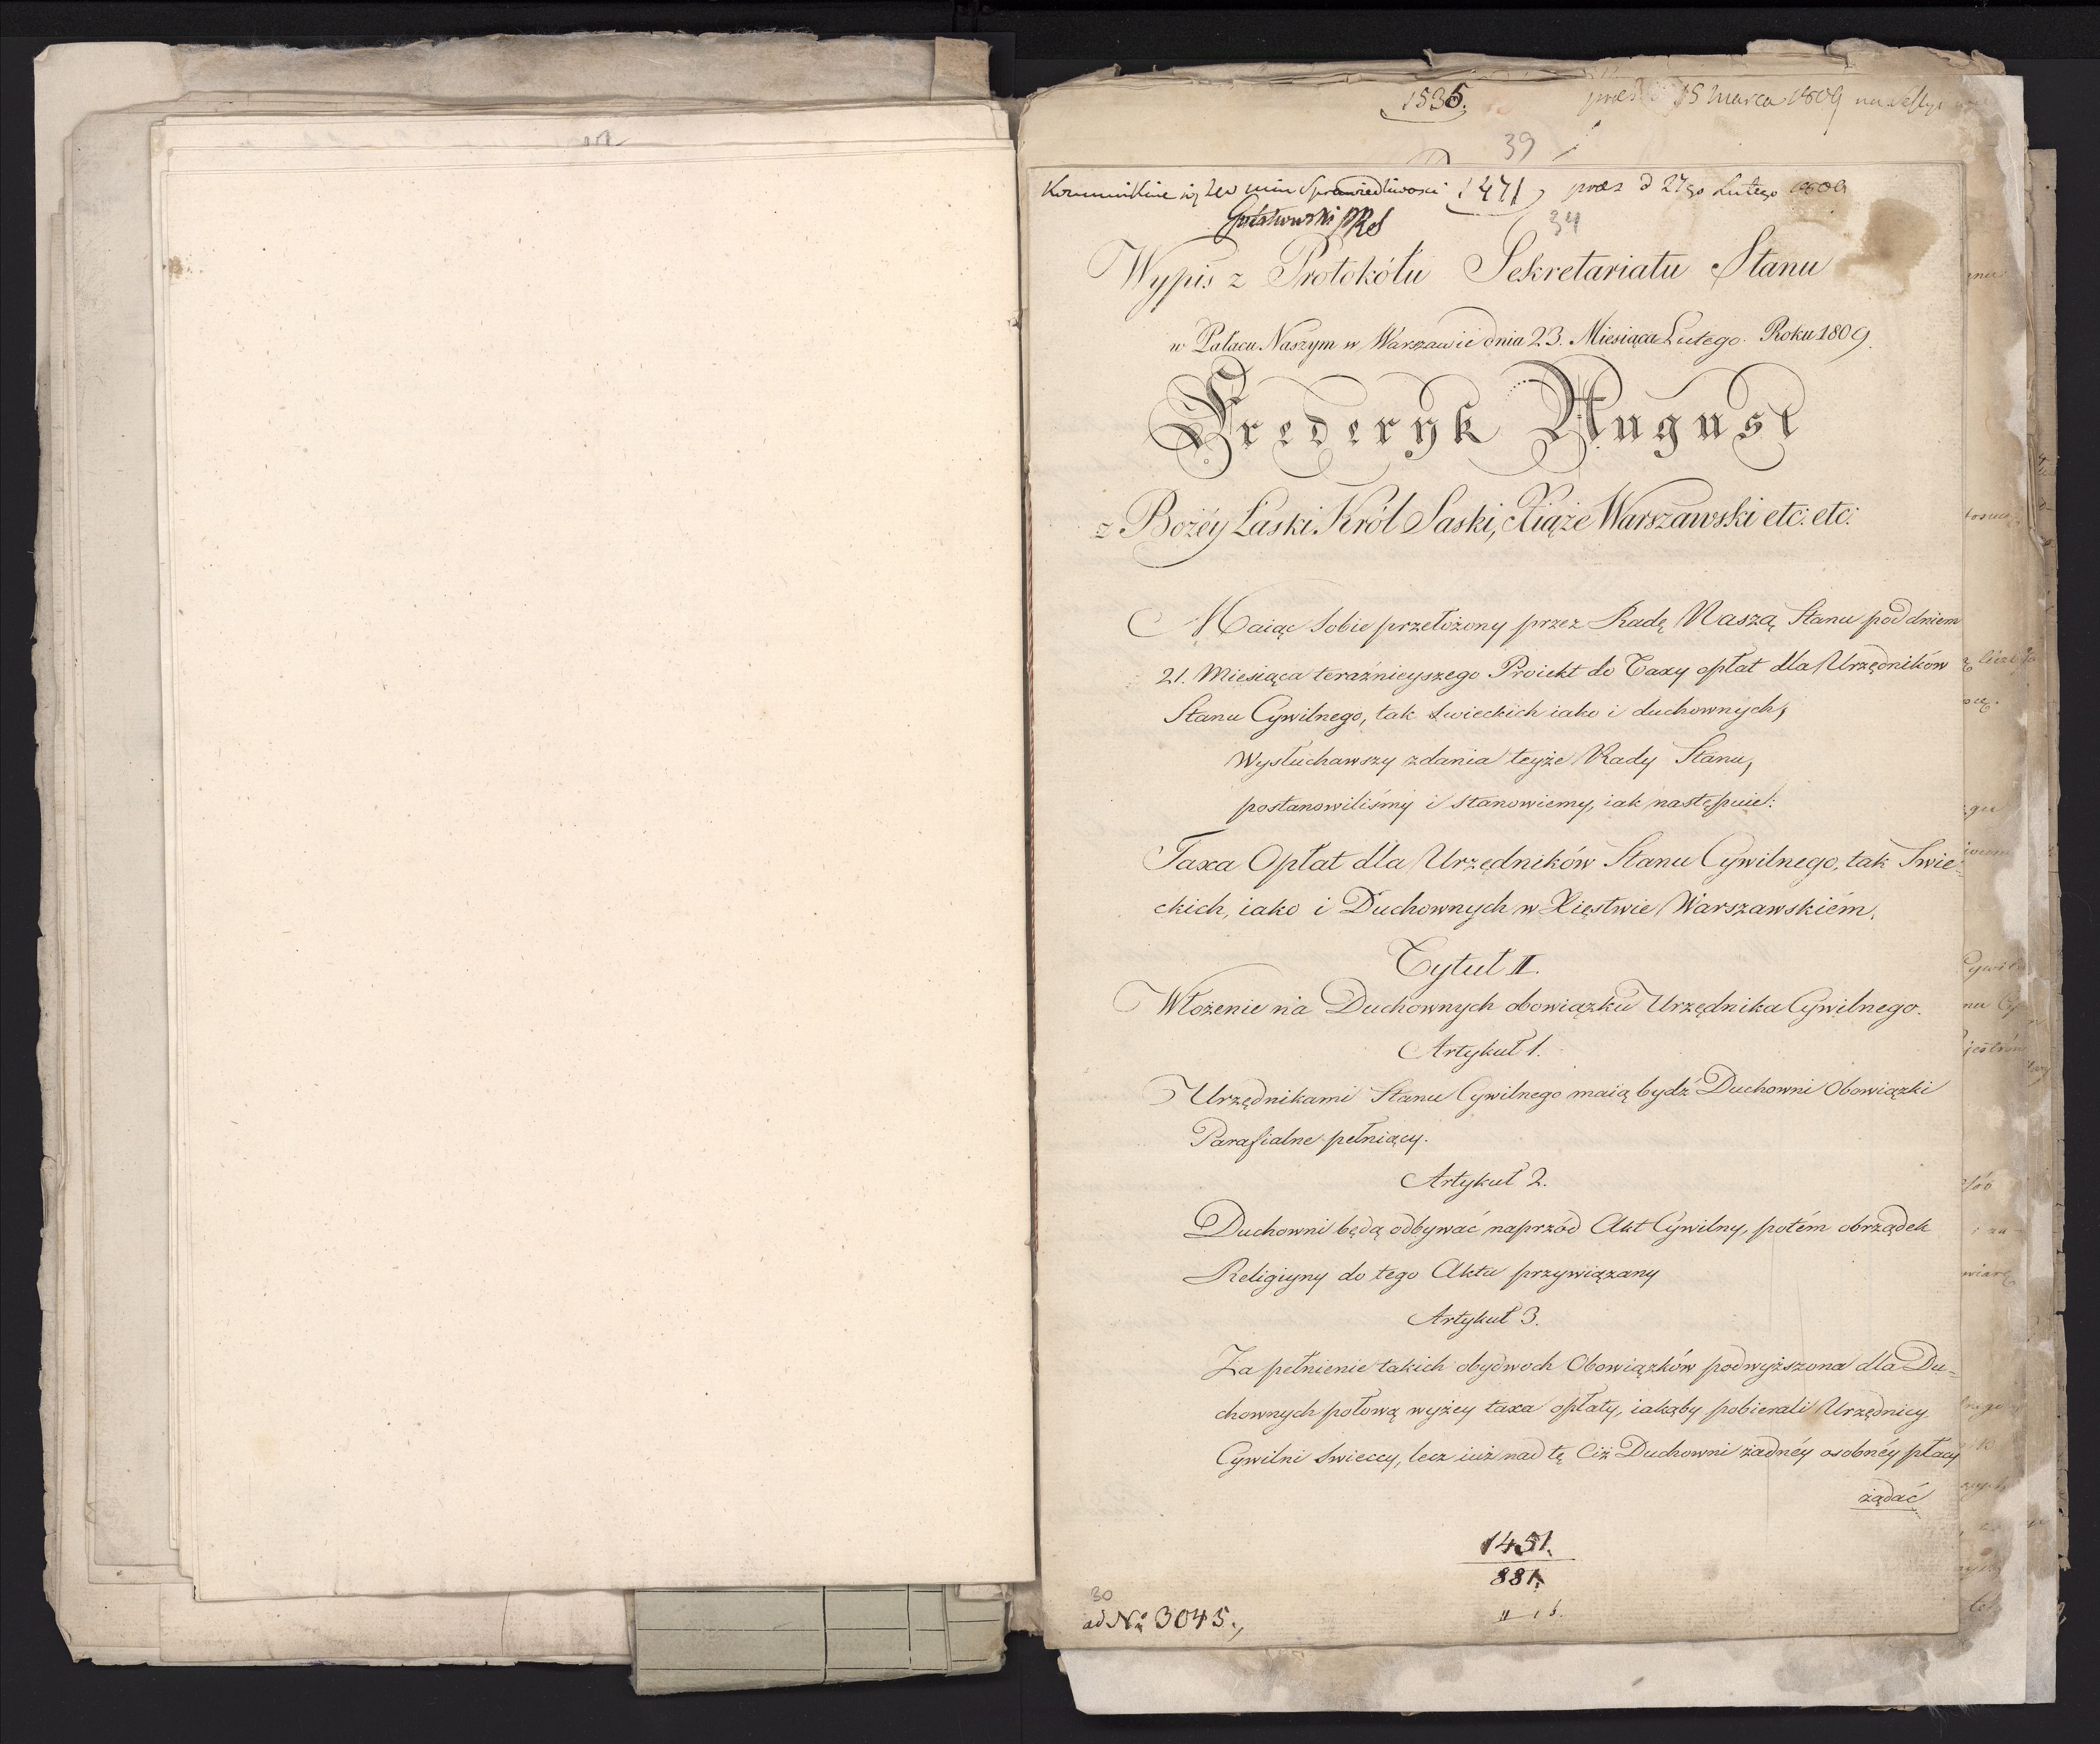 1535.
15 Marca 1809
39
Kommunikuie się z Min Sprawiedliwości 1471 praes d 27go Lutego 1809
34
Wypis z Protokółu Sekretariatu Stanu
w Pałacu Naszym w Warszawie dnia 23. Miesiąca Lutego. Roku 1809.
Frederyk August
z Bożéy Łaski Król Saski, Xiąże Warszawski etc: etc:
Maiąc sobie przełożony przez Radę Naszą Stanu pod dniem
21. Miesiąca teraźnieyszego Proiekt do Taxy opłat dla Urzędników
Stanu Cywilnego, tak swieckich iako i duchownych,
Wysłuchawszy zdania teyże Rady Stanu,
postanowiliśmy i stanowiemy, iak następuie:
Taxa Opłat dla Urzędników Stanu Cywilnego, tak Swie-
ckich, iako i Duchownych w Xięstwie Warszawskiém.
Tytuł II.
Włożenie na Duchownych obowiązku Urzędnika Cywilnego.
Artykuł 1.
Urzędnikami Stanu Cywilnego maią bydź Duchowni Obowiązki
Parafialne pełniący.
Artykuł 2.
Duchowni będą odbywać naprzód Akt Cywilny, potém obrządek
Religiyny do tego Aktu przywiązany
Artykuł 3.
Za pełnienie takich obydwoch Obowiązków podwyższona dla Du-
chownych połową wyżey taxa opłaty, iakąby pobierali Urzędnicy
Cywilni swieccy, lecz iuż nad tę Ciż Duchowni żadnéy osobnéy płacy
żądać
1451.
881.
30
ad No 3045.